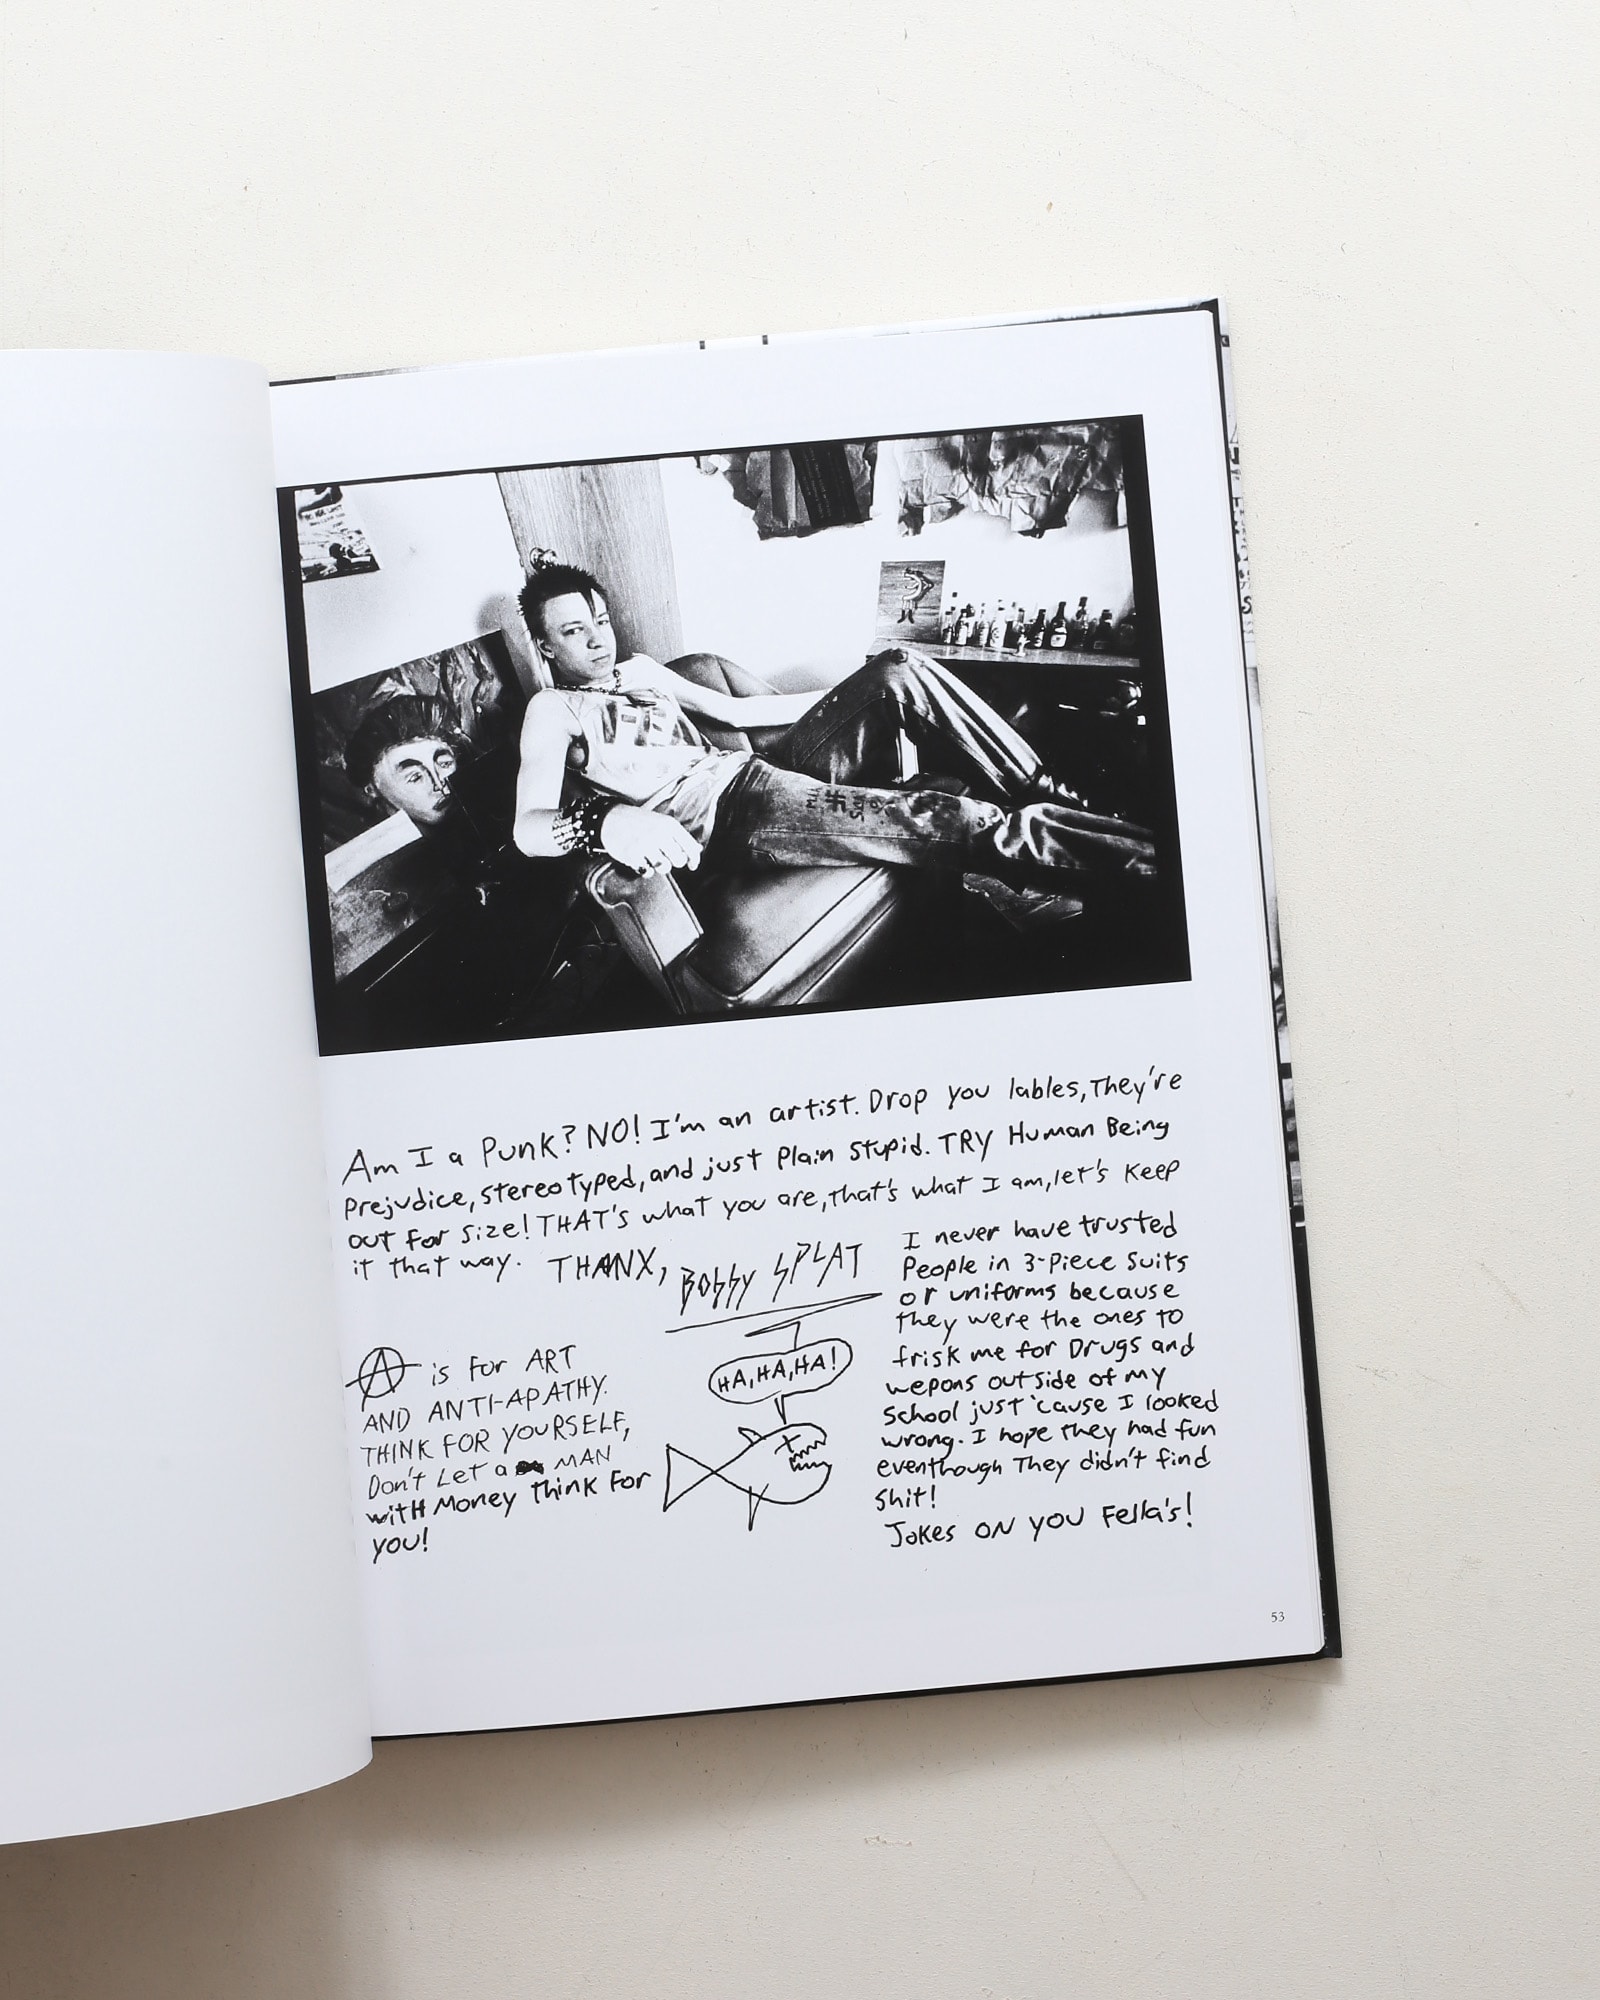 Am I a Punk? NO! I'm an artist. Drop you lables, They're
Prejudice, stereotyped, and just Plain Stupid. TRY Human Being
out for size! THAT'S what you are, that's what I am, let's Keep
it that way. THANX, Bobby SPLAT
Ⓐ is for ART
AND ANTI-APATHY.
THINK FOR YOURSELF,
Don't Let a MAN
with Money Think For
you!
HA, HA, HA!
I never have trusted
People in 3-Piece Suits
or uniforms because
they were the ones to
frisk me for Drugs and
wepons outside of my
School just 'cause I looked
wrong. I hope they had fun
eventhough They didn't find
Shit!
Jokes ON you Fella's!
53